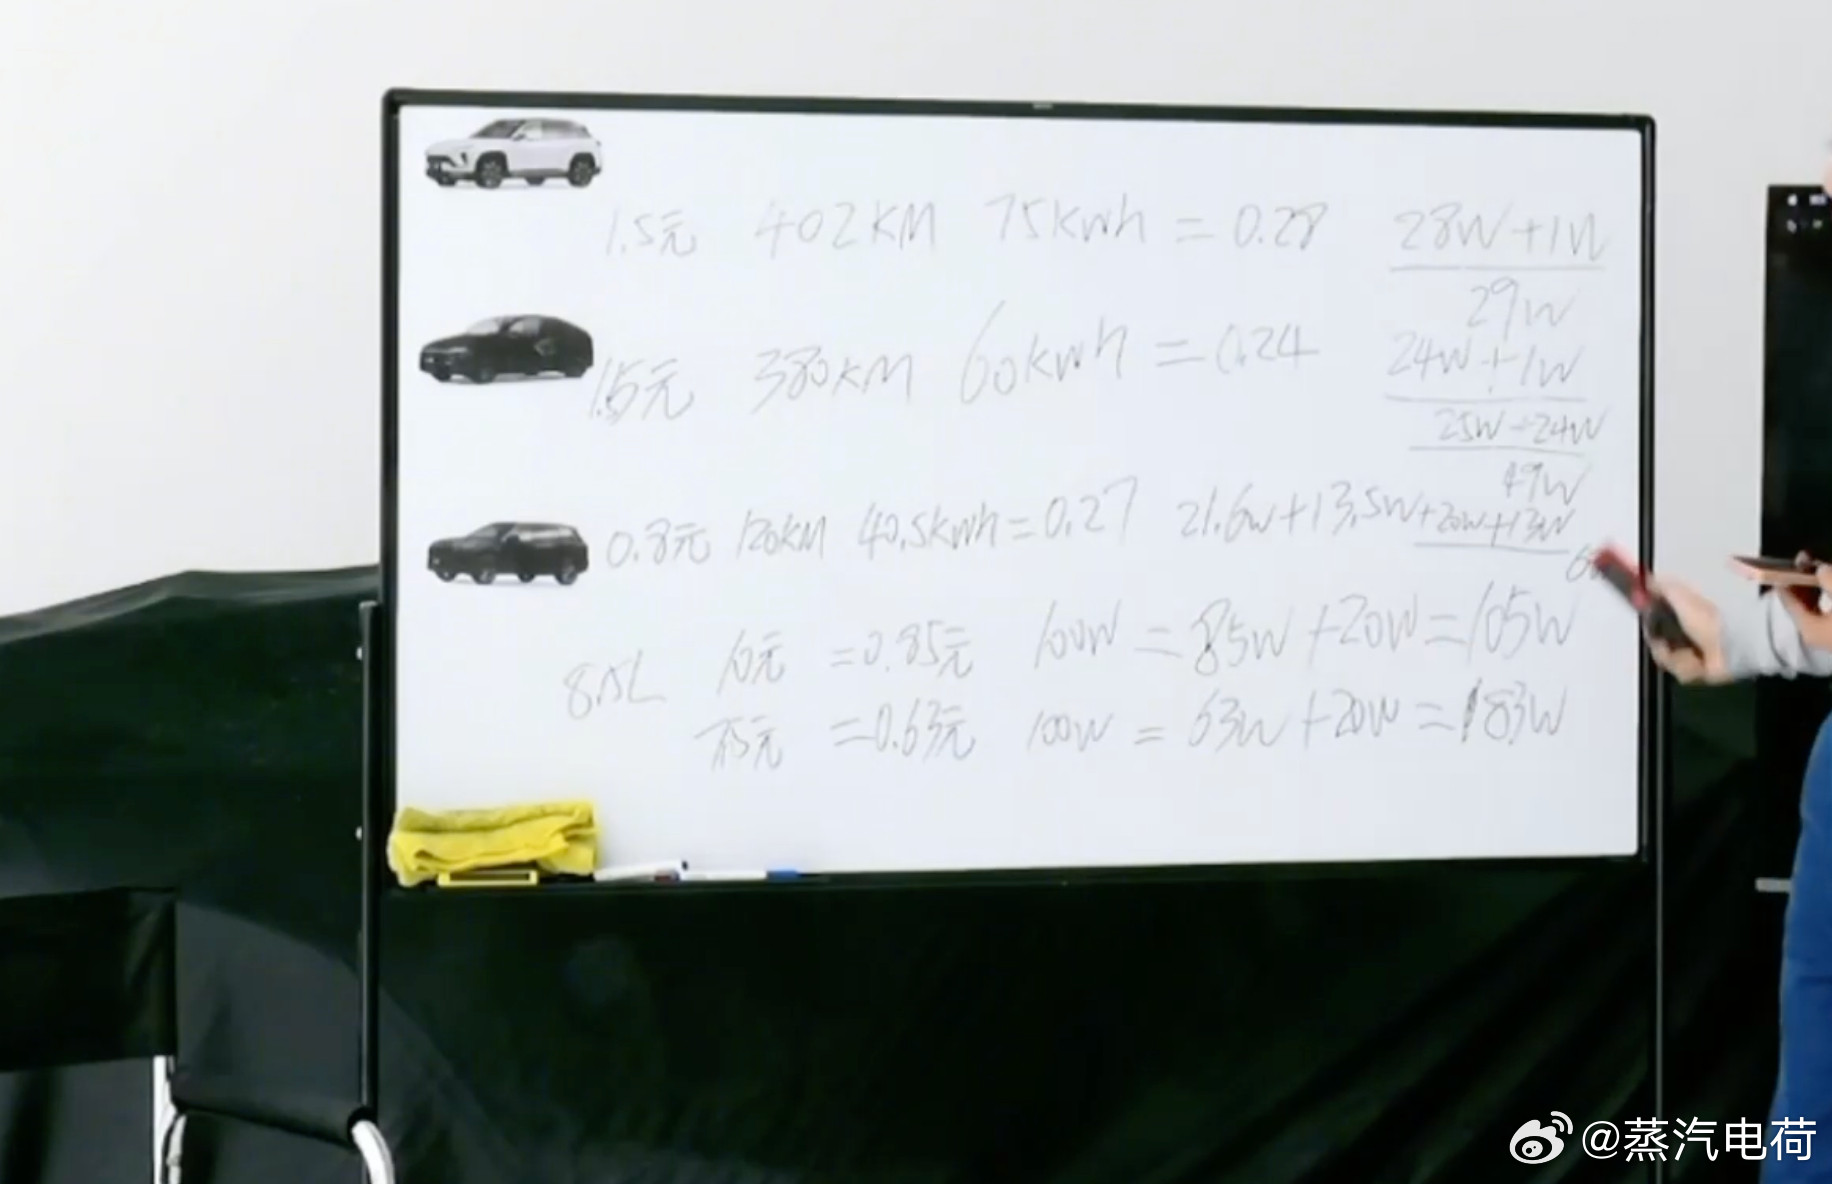 1.5元 402KM 75kWh = 0.28 28W+1W
29W
1.5元 380KM 60kWh = 0.24 24W+1W
25W+24W
49W
0.8元 120KM 40.5kWh = 0.27 21.6W+13.5W+20W+13W
8.5L 10元 =0.85元 100W = 85W+20W=105W
7.5元 =0.63元 100W = 63W+20W=183W
@蒸汽电荷